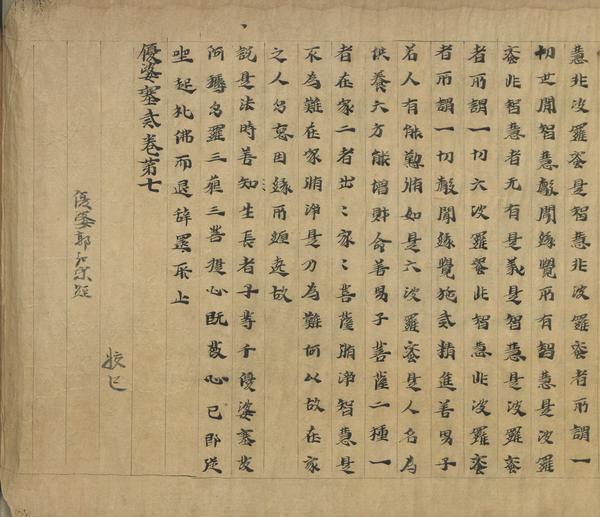 慧非波羅蜜是智慧非波羅蜜者所謂一
切世間智慧聲聞緣覺所有智慧是波羅
蜜非智慧者无有是義是智慧是波羅蜜
者所謂一切六波羅蜜非智慧非波羅蜜
者所謂一切聲聞緣覺施戒精進善男子
若人有能懃脩如是六波羅蜜是人名為
供養六方能增財命善男子菩薩二種一
者在家二者出〻家〻菩薩脩淨智慧是
不為難在家脩淨是乃為難何以故在家
之人多惡因緣所纏遶故
說是法時善知生長者子等千優婆塞發
阿耨多羅三藐三菩提心既發心已即從
坐起礼佛而退辭還所止
優婆塞戒卷第七
校已
優婆郭